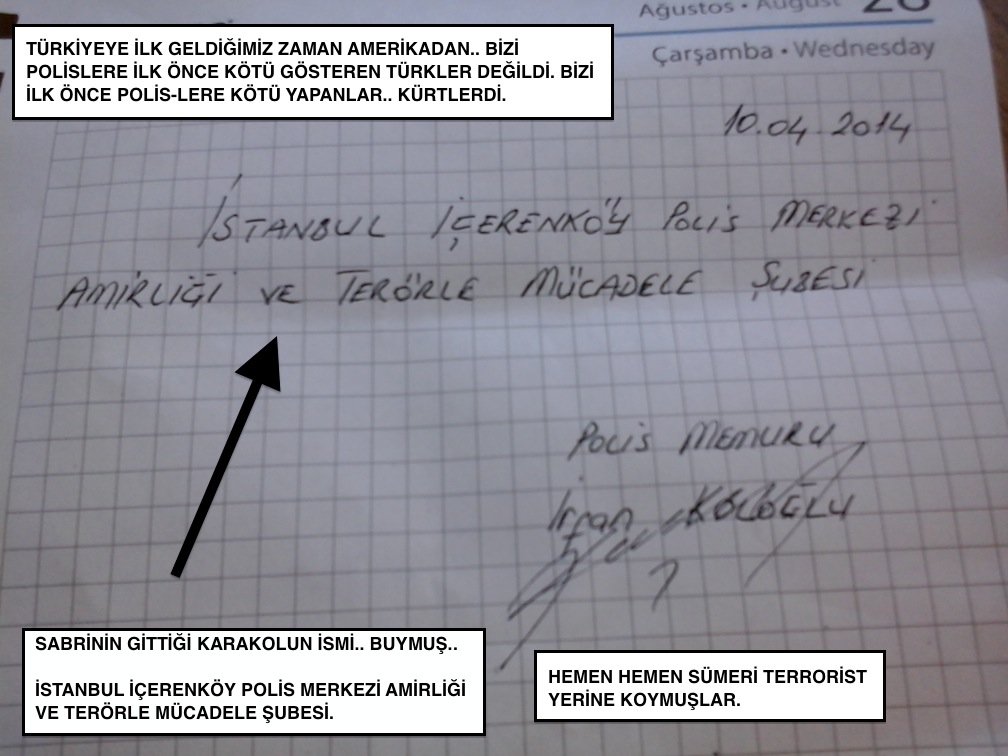 Ağustos • August 28
Çarşamba • Wednesday
TÜRKİYEYE İLK GELDİĞİMİZ ZAMAN AMERİKADAN.. BİZİ
POLİSLERE İLK ÖNCE KÖTÜ GÖSTEREN TÜRKLER DEĞİLDİ. BİZİ
İLK ÖNCE POLİS-LERE KÖTÜ YAPANLAR.. KÜRTLERDİ.
10.04.2014
İSTANBUL İÇERENKÖY POLİS MERKEZİ
AMİRLİĞİ VE TERÖRLE MÜCADELE ŞUBESİ
POLİS MEMURU
İrfan
SABRİNİN GİTTİĞİ KARAKOLUN İSMİ.. BUYMUŞ..
İSTANBUL İÇERENKÖY POLİS MERKEZİ AMİRLİĞİ
VE TERÖRLE MÜCADELE ŞUBESİ.
HEMEN HEMEN SÜMERİ TERRORİST
YERİNE KOYMUŞLAR.